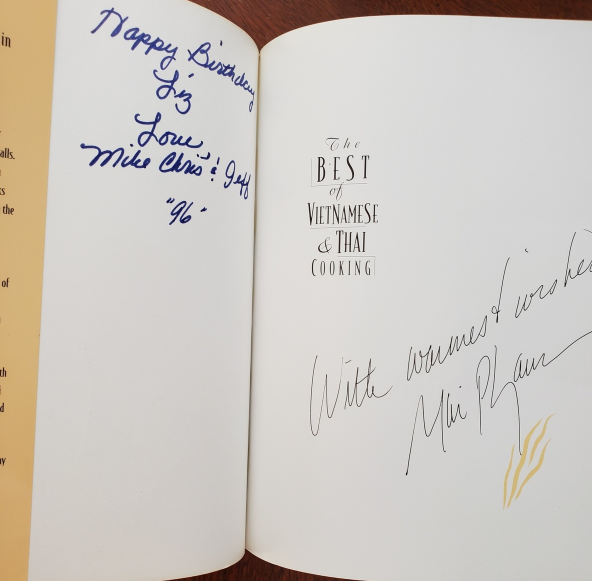 in
alls,
the
of
th
d
Happy Birthday
Liz
Love
Mike Chris & Jeff
"96"
The
BEST
of
VIETNAMESE
& THAI
COOKING
With warmest wishes
Mai Pham